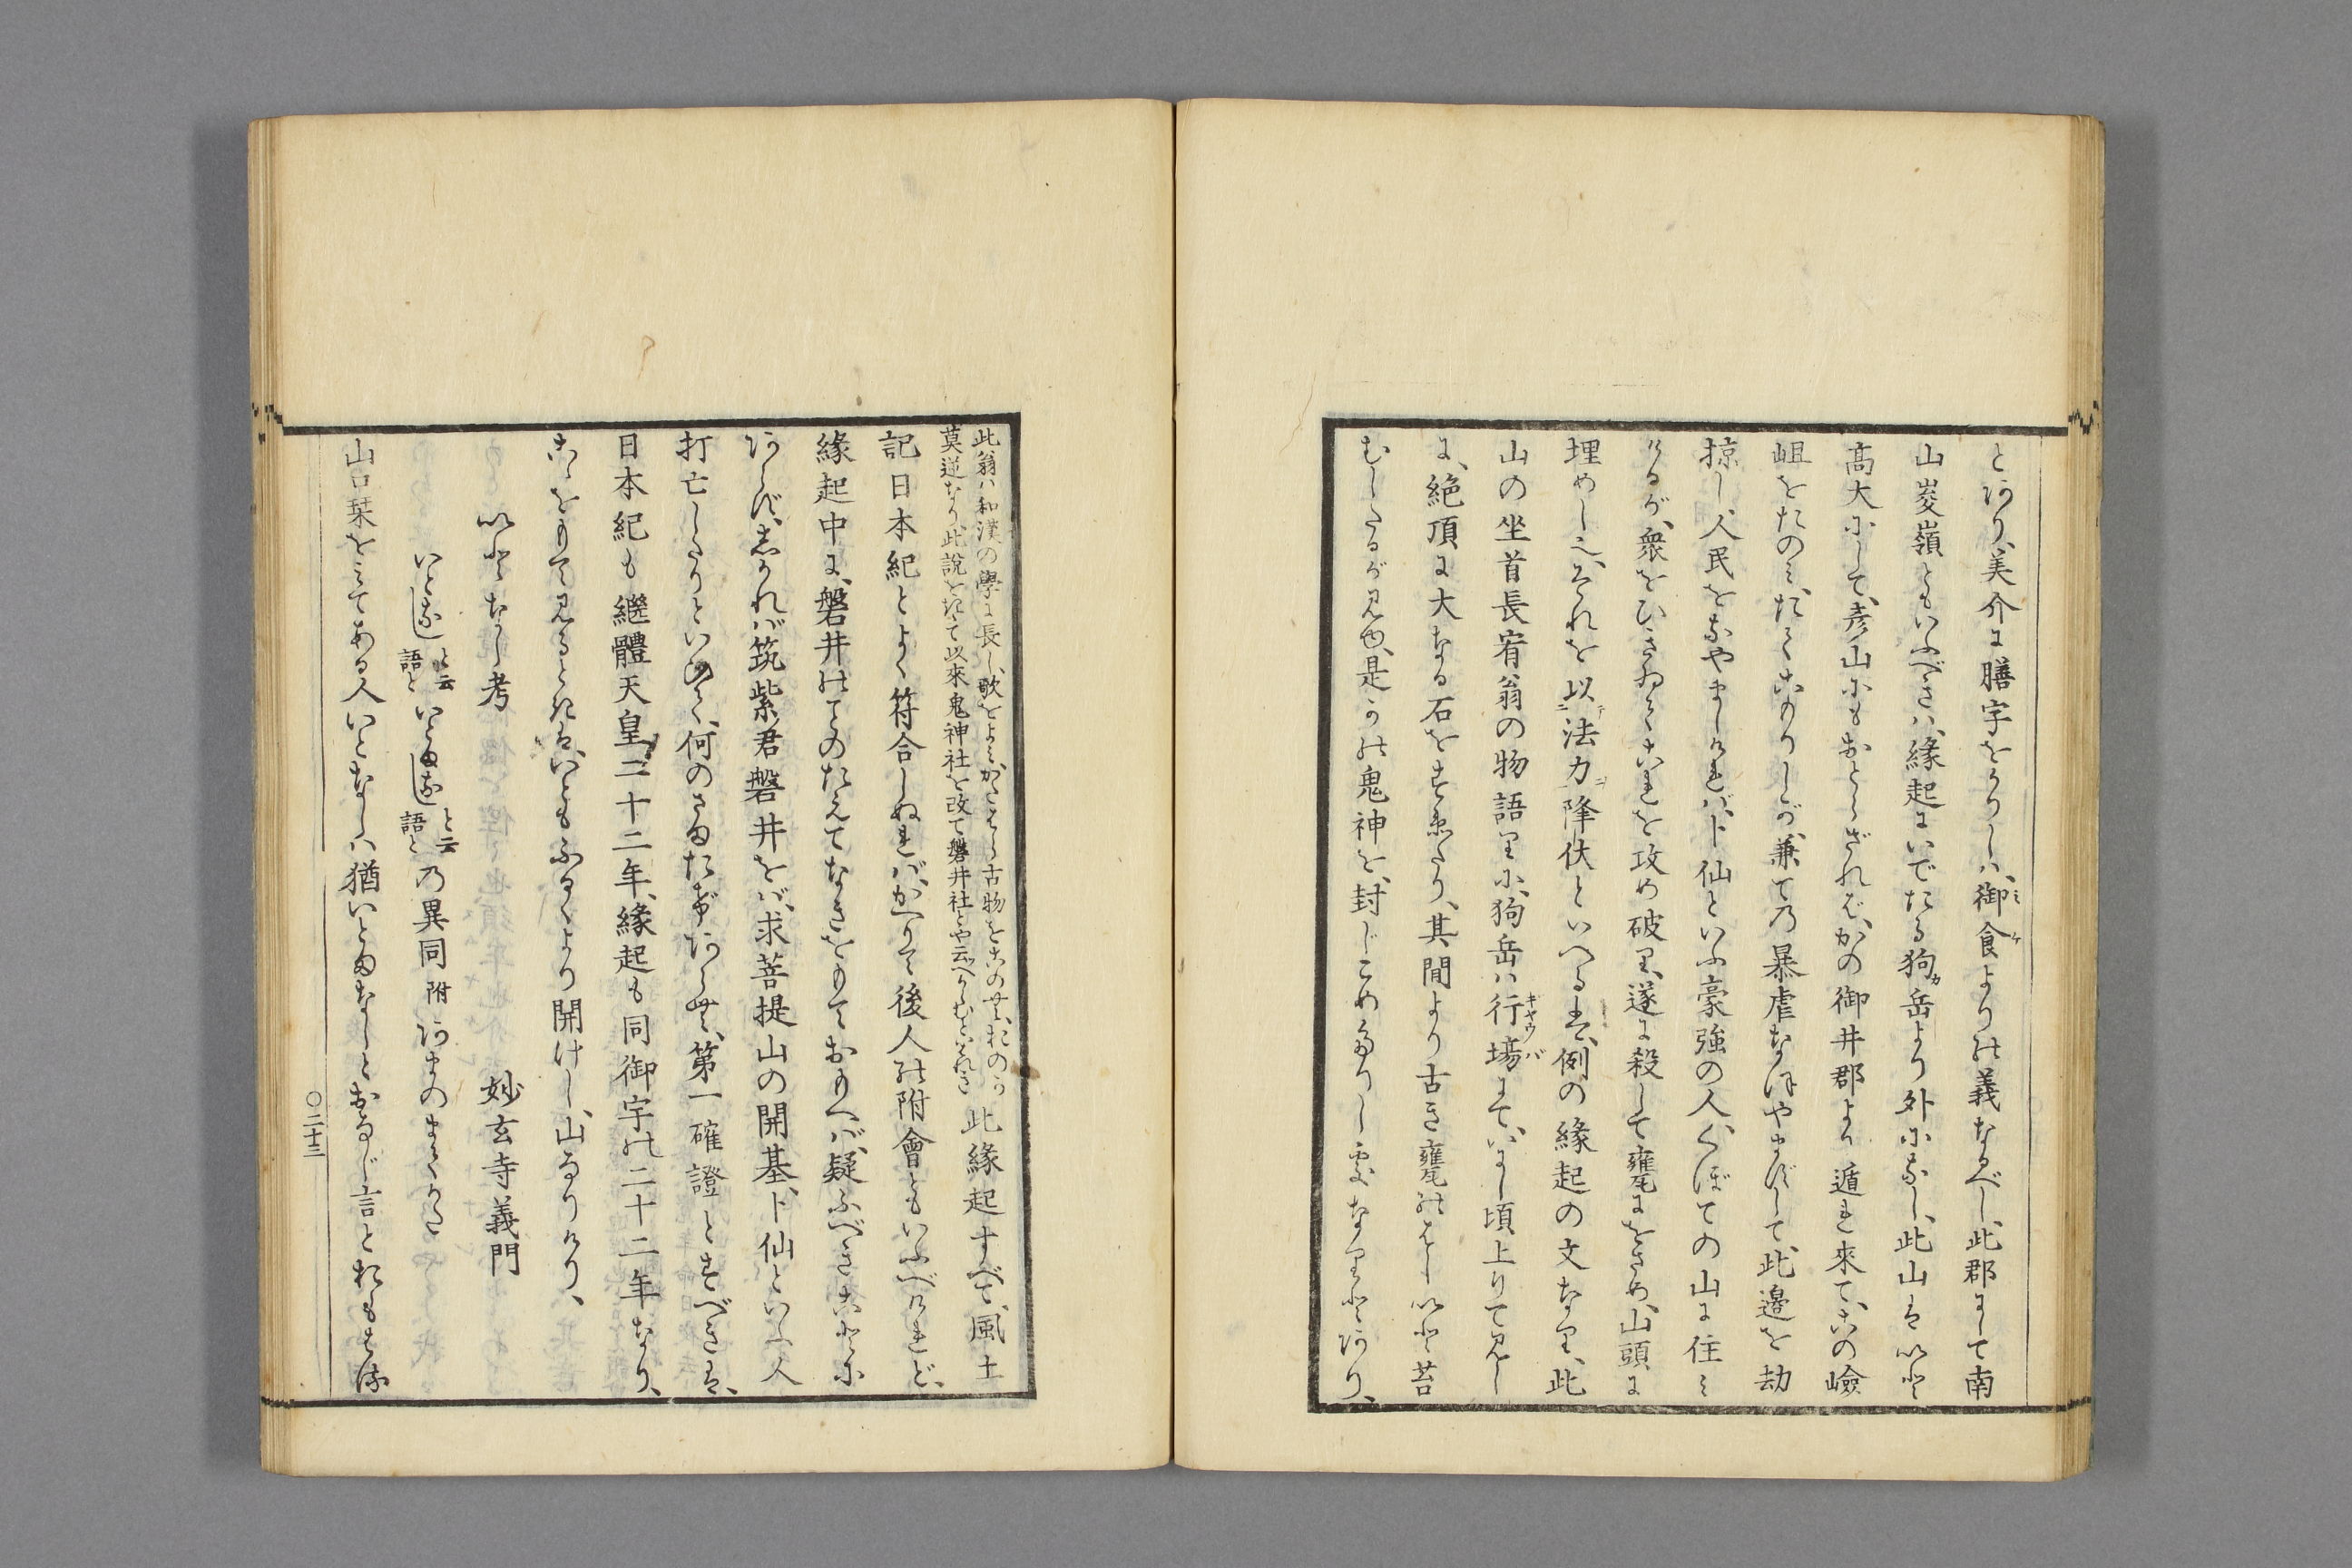 とあり、美介は膳字をかりしハ、御食よりの義なるべし、此郡にして南
山峻嶺ともいふべきハ、縁起にいでたる狗岳より外になし、此山はいと
高大にして、彦山にもおとらざれば、かの御井郡より遁れ來て、此の嶮
岨をたのみ、たてこもりしが、兼ての暴虐なほやまずして、此邊を劫
掠し、人民をなやましければ、卜仙といふ豪強の人、くぼての山に住み
けるが、衆をひきゐてこれを攻め破り、遂に殺して甕にをさめ、山頭に
埋めし也、それを以法力降伏といへるは、例の縁起の文なり、此
山の坐首長宥翁の物語りに、狗岳ハ行場にて、いまし頃上りて見し
に、絶頂に大なる石をすゑたり、其間より古き甕のはし、いと苔
むしたるが見ゆ、是かの鬼神を、封じこめたりし處なりとあり、
此翁ハ和漢の學に長し、歌をよみ、かたはら古物をこのめり、おのか
莫逆なり、此説をたて以來鬼神社を改て磐井社とや云へからむといはれき
此縁起すべて、風土
記日本紀とよく符合しぬれば、かへりて後人の附會ともいふべけれど、
縁起中に、磐井のことのたえてなきをもておもへば、疑ふべきことに
あらず、しかれば筑紫君磐井をば、求菩提山の開基、卜仙といふ人
打亡したりといひて、何のさまたげあらむ、第一確證とすべきは、
日本紀も繼體天皇二十二年、縁起も同御宇の二十二年なり、
これをもて見るときは、いともふるくより開けし、山なりけり、
いとなし考　妙玄寺義門
いとなしと云語といとまなしと云語との異同附あまのまてかた
山口栞をみてある人いとなしハ猶いとまなしとおなじ言とおもはる
〇二十三